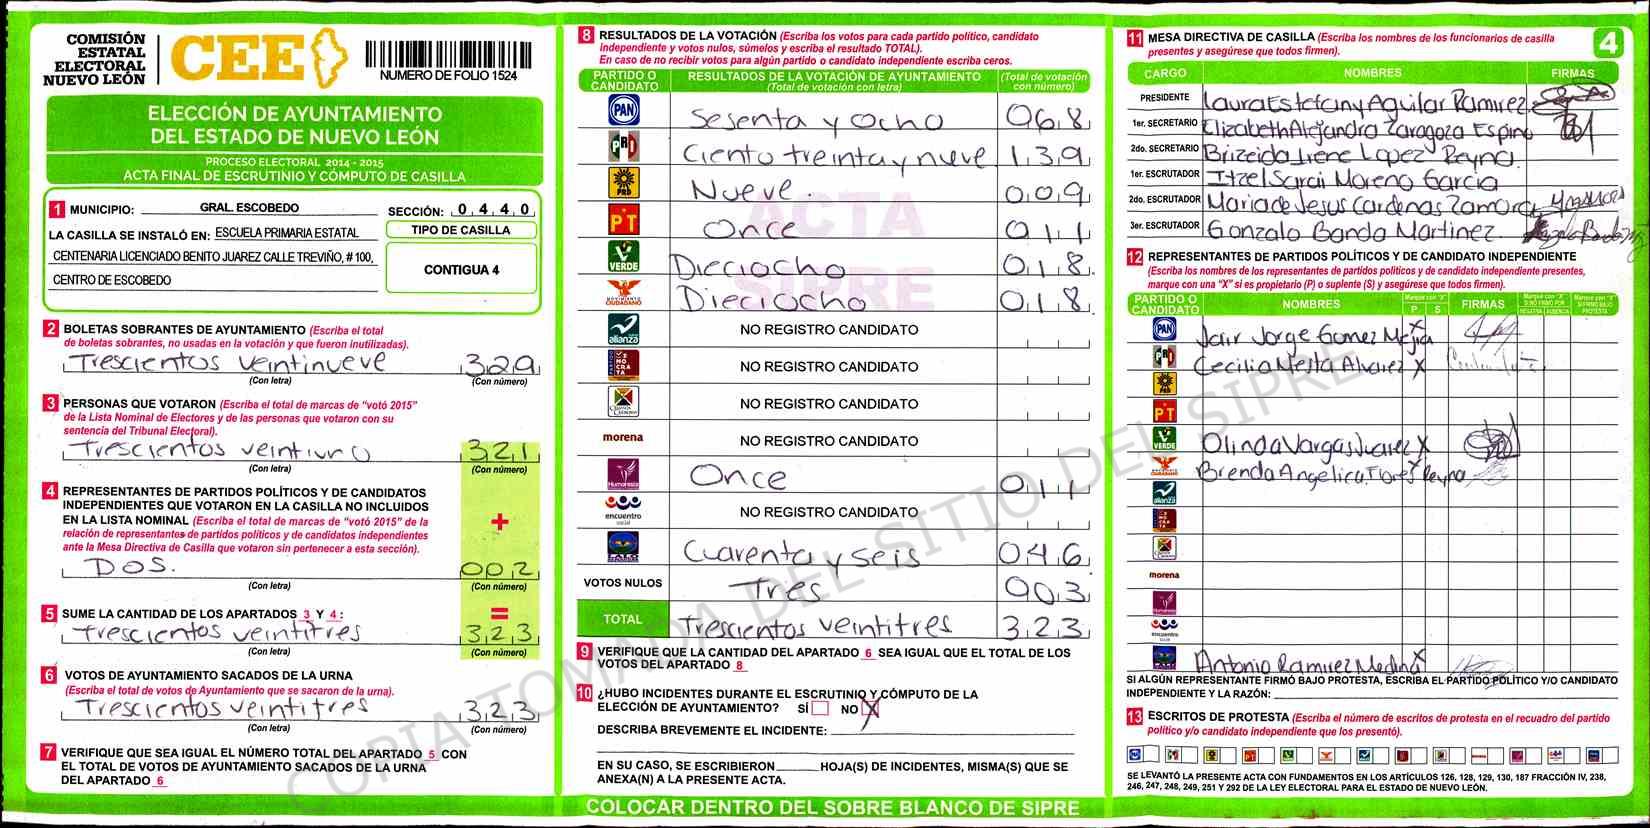 COMISIÓN
ESTATAL
ELECTORAL
NUEVO LEÓN
CEE
NUMERO DE FOLIO 1524
ELECCIÓN DE AYUNTAMIENTO
DEL ESTADO DE NUEVO LEÓN
PROCESO ELECTORAL 2014 - 2015
ACTA FINAL DE ESCRUTINIO Y CÓMPUTO DE CASILLA
1 MUNICIPIO: GRAL. ESCOBEDO SECCIÓN: 0,4,4,0
LA CASILLA SE INSTALÓ EN: ESCUELA PRIMARIA ESTATAL
CENTENARIA LICENCIADO BENITO JUAREZ CALLE TREVIÑO, # 100,
CENTRO DE ESCOBEDO
TIPO DE CASILLA
CONTIGUA 4
2 BOLETAS SOBRANTES DE AYUNTAMIENTO (Escriba el total
de boletas sobrantes, no usadas en la votación y que fueron inutilizadas).
Trescientos veintinueve 329
(Con letra) (Con número)
3 PERSONAS QUE VOTARON (Escriba el total de marcas de "votó 2015"
de la Lista Nominal de Electores y de las personas que votaron con su
sentencia del Tribunal Electoral).
Trescientos veintiuno 321
(Con letra) (Con número)
4 REPRESENTANTES DE PARTIDOS POLÍTICOS Y DE CANDIDATOS
INDEPENDIENTES QUE VOTARON EN LA CASILLA NO INCLUIDOS
EN LA LISTA NOMINAL (Escriba el total de marcas de "votó 2015" de la
relación de representantes de partidos políticos y de candidatos independientes
ante la Mesa Directiva de Casilla que votaron sin pertenecer a esta sección).
+
DOS. 002
(Con letra) (Con número)
5 SUME LA CANTIDAD DE LOS APARTADOS 3 Y 4: =
Trescientos veintitres 323
(Con letra) (Con número)
6 VOTOS DE AYUNTAMIENTO SACADOS DE LA URNA
(Escriba el total de votos de Ayuntamiento que se sacaron de la urna).
Trescientos veintitres 323
(Con letra) (Con número)
7 VERIFIQUE QUE SEA IGUAL EL NÚMERO TOTAL DEL APARTADO 5 CON
EL TOTAL DE VOTOS DE AYUNTAMIENTO SACADOS DE LA URNA
DEL APARTADO 6
8 RESULTADOS DE LA VOTACIÓN (Escriba los votos para cada partido político, candidato
independiente y votos nulos, súmelos y escriba el resultado TOTAL).
En caso de no recibir votos para algún partido o candidato independiente escriba ceros.
PARTIDO O CANDIDATO RESULTADOS DE LA VOTACIÓN DE AYUNTAMIENTO (Total de votación con letra) (Total de votación con número)
PAN Sesenta y ocho 068
PRD Ciento treinta y nueve 139
PRD Nueve. 009
PT Once 011
VERDE Dieciocho 018
MOVIMIENTO CIUDADANO Dieciocho 018
alianza NO REGISTRO CANDIDATO
DEMOCRATA NO REGISTRO CANDIDATO
NO REGISTRO CANDIDATO
morena NO REGISTRO CANDIDATO
Humanista Once 011
encuentro social NO REGISTRO CANDIDATO
Cuarenta y seis 046
VOTOS NULOS Tres 003
TOTAL Trescientos veintitres 323
ACTA
SIPRE
9 VERIFIQUE QUE LA CANTIDAD DEL APARTADO 6 SEA IGUAL QUE EL TOTAL DE LOS
VOTOS DEL APARTADO 8
10 ¿HUBO INCIDENTES DURANTE EL ESCRUTINIO Y CÓMPUTO DE LA
ELECCIÓN DE AYUNTAMIENTO? SÍ NO X
DESCRIBA BREVEMENTE EL INCIDENTE:
EN SU CASO, SE ESCRIBIERON HOJA(S) DE INCIDENTES, MISMA(S) QUE SE
ANEXA(N) A LA PRESENTE ACTA.
COLOCAR DENTRO DEL SOBRE BLANCO DE SIPRE
11 MESA DIRECTIVA DE CASILLA (Escriba los nombres de los funcionarios de casilla
presentes y asegúrese que todos firmen).
4
CARGO NOMBRES FIRMAS
PRESIDENTE Laura Estefany Aguilar Ramirez
1er. SECRETARIO Elizabeth Alejandra Zaragoza Espino
2do. SECRETARIO Brizeida Irene Lopez Reyna.
1er. ESCRUTADOR Itzel Sarai Moreno Garcia
2do. ESCRUTADOR Maria de Jesus Cardenas Zamora
3er. ESCRUTADOR Gonzalo Banda Martinez.
12 REPRESENTANTES DE PARTIDOS POLÍTICOS Y DE CANDIDATO INDEPENDIENTE
(Escriba los nombres de los representantes de partidos políticos y de candidato independiente presentes,
marque con una "X" si es propietario (P) o suplente (S) y asegúrese que todos firmen).
PARTIDO O CANDIDATO NOMBRES Marque con "X" P S FIRMAS Marque con "X" SI NO FIRMÓ POR NEGATIVA AUSENCIA Marque con "X" SI FIRMÓ BAJO PROTESTA
PAN Jair Jorge Gomez Mejia X
PRD Cecilia Nesta Alvarez X
PRD
PT
VERDE Olinda Vargas Juarez X
Brenda Angelica Flores Reyna X
alianza
morena
encuentro
Antonio Ramirez Medina X
SI ALGÚN REPRESENTANTE FIRMÓ BAJO PROTESTA, ESCRIBA EL PARTIDO POLÍTICO Y/O CANDIDATO
INDEPENDIENTE Y LA RAZÓN:
13 ESCRITOS DE PROTESTA (Escriba el número de escritos de protesta en el recuadro del partido
político y/o candidato independiente que los presentó).
SE LEVANTÓ LA PRESENTE ACTA CON FUNDAMENTOS EN LOS ARTÍCULOS 126, 128, 129, 130, 187 FRACCIÓN IV, 238,
246, 247, 248, 249, 251 Y 292 DE LA LEY ELECTORAL PARA EL ESTADO DE NUEVO LEÓN.
COPIA TOMADA DEL SITIO DEL SIPRE